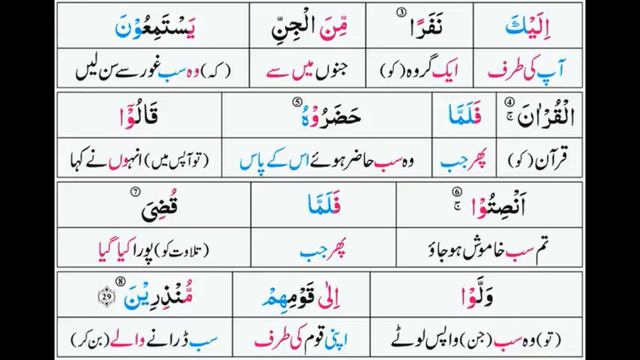 اِلَيْكَ نَفَرًا ③ مِّنَ الْجِنِّ يَسْتَمِعُوْنَ
آپ کی طرف ایک گروہ (کو) جنوں میں سے (کہ) وہ سب غور سے سن لیں
الْقُرْاٰنَ ④ ۚ فَلَمَّا حَضَرُوْهُ ⑤ قَالُوْۤا
قرآن (کو) پھر جب وہ سب حاضر ہوئے اس کے پاس (تو آپس میں) انہوں نے کہا
اَنْصِتُوْا ⑥ ۚ فَلَمَّا قُضِیَ ⑦
تم سب خاموش ہو جاؤ پھر جب (تلاوت کو) پورا کیا گیا
وَلَّوْا اِلٰی قَوْمِهِمْ مُّنْذِرِيْنَ ⑧ ۝29
(تو) وہ سب (جن) واپس لوٹے اپنی قوم کی طرف سب ڈرانے والے (بن کر)